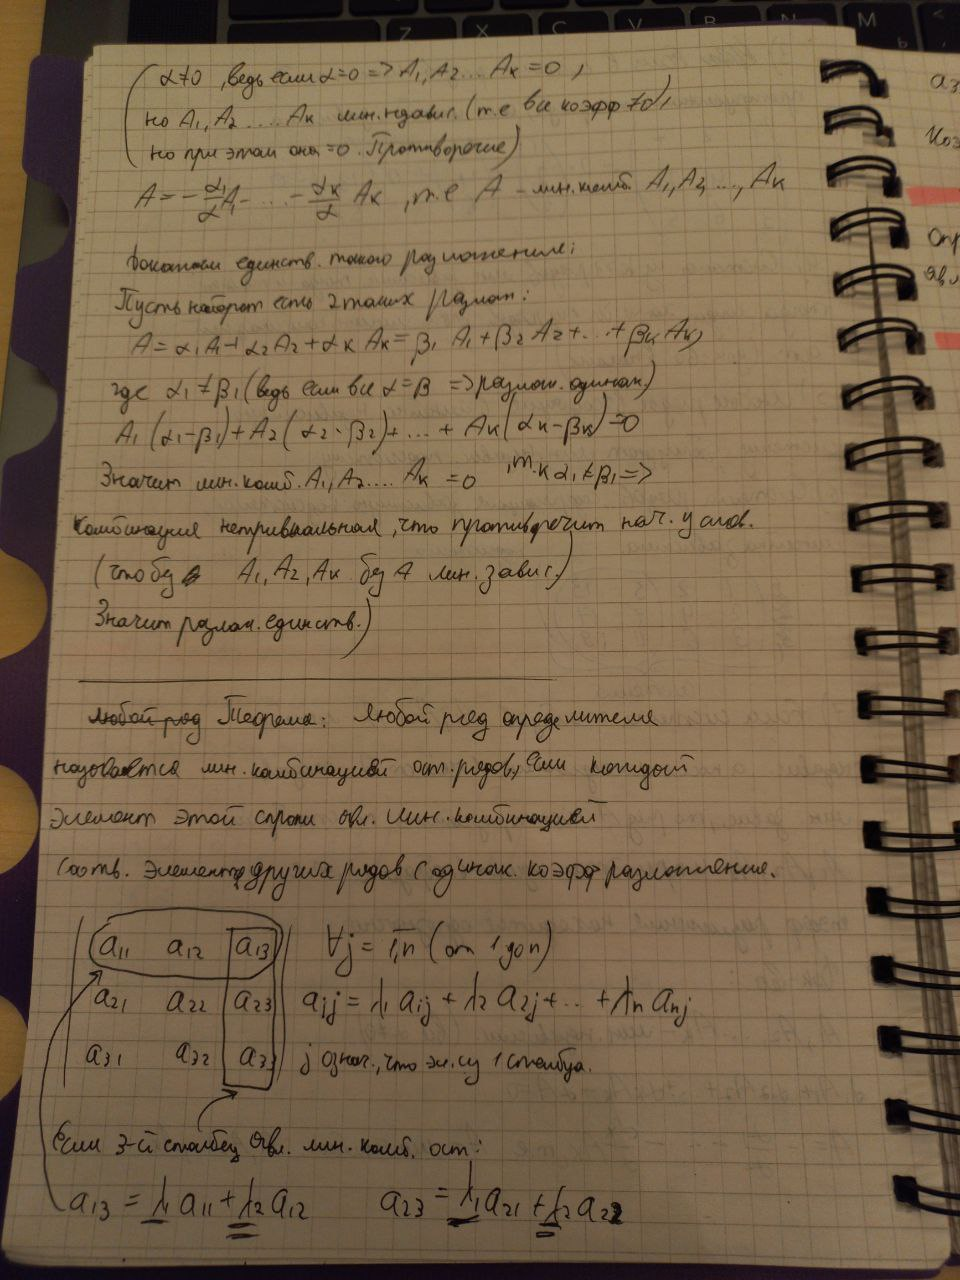 (α≠0, ведь если α=0 => A₁, A₂ .... Aₖ = 0,
но A₁, A₂ ..... Aₖ лин. независ. (т.е все коэфф ≠0),
но при этом она =0. Противоречие)
A = -α₁/α A₁ - ... - αₖ/α Aₖ, т.е A - лин. комб. A₁, A₂, ..., Aₖ
Докажем единств. такого разложения:
Пусть наоборот есть 2 таких разлож:
A = α₁A₁ + α₂A₂ + αₖ Aₖ = β₁ A₁ + β₂ A₂ + .. + βₖ Aₖ,
где α₁ ≠ β₁ (ведь если все α=β => разлож. одинак.)
A₁(α₁-β₁) + A₂(α₂-β₂) + ... + Aₖ(αₖ-βₖ) = 0
Значит лин. комб. A₁, A₂ .... Aₖ = 0, т.к α₁ ≠ β₁ =>
Комбинация нетривиальная, что противоречит нач. услов.
(что без A₁, A₂, Aₖ без A лин. завис.)
Значит разлож. единств.)
Теорема: Любой ряд определителя
называется лин. комбинацией ост. рядов, если каждый
элемент этой строки явл. лин. комбинацией
соотв. элемент других рядов с одинак. коэфф разложения.
a₁₁ a₁₂ a₁₃ ∀j = 1,n (от 1 до n)
a₂₁ a₂₂ a₂₃ aᵢⱼ = λ₁ a₁ⱼ + λ₂ a₂ⱼ + .. + λₙ aₙⱼ
a₃₁ a₃₂ a₃₃ j означ., что эл. из 1 столбца.
Если 3-й столбец явл. лин. комб. ост:
a₁₃ = λ₁ a₁₁ + λ₂ a₁₂ a₂₃ = λ₁ a₂₁ + λ₂ a₂₂